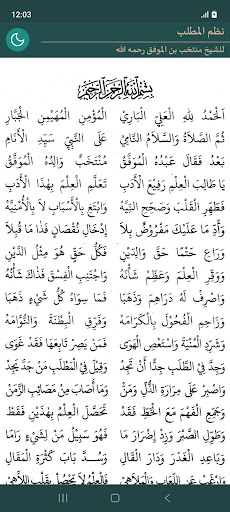 12:03
نظم المطلب
للشيخ منتخب بن الموفق رحمه الله
بِسْمِ اللهِ الرَّحْمٰنِ الرَّحِيْمِ
اَلْحَمْدُ لِلّٰهِ الْعَلِيِّ الْبَارِيْ اَلْمُؤْمِنِ الْمُهَيْمِنِ الْجَبَّارِ
ثُمَّ الصَّلَاةُ وَالسَّلَامُ النَّامِيْ عَلَى النَّبِيِّ سَيِّدِ الْأَنَامِ
بَعْدُ فَقَالَ عَبْدُهُ الْمُوَفَّقُ مُنْتَخَبٌ وَالِدُهُ الْمُوَفَّقُ
يَا طَالِبَ الْعِلْمِ رَفِيْعَ الْأَدَبِ تَعَلَّمِ الْعِلْمَ بِهٰذَا الْأَدَبِ
فَطَهِّرِ الْقَلْبَ وَصَحِّحِ النِّيَّهْ وَابْتَغِ بِالْأَسْبَابِ لَا بِالْأُمْنِيَّهْ
وَأَدِّ مَا عَلَيْكَ مَفْرُوْضٌ بِلَا إِدْخَالِ نُقْصَانٍ فَذَا مَا قُبِلَا
وَرَاعِ حَتْمًا حَقَّ وَالِدَيْنِ فَكُلُّ حَقٍّ هُوَ مِثْلُ الدَّيْنِ
وَوَقِّرِ الْعِلْمَ وَعَظِّمْ شَأْنَهُ وَاجْتَنِبِ الْفِسْقَ فَذَاكَ شَأْنُهُ
وَاصْرِفْ لَهُ دَرَاهِمَ وَذَهَبَا فَمَا سِوَاهُ كُلُّ شَيْءٍ ذَهَبَا
وَزَاحِمِ الْفُحُوْلَ بِالْكَرَامَهْ وَفَرِّقِ الْبِطْنَةَ وَالنَّوَّامَهْ
وَشَرِّدِ الْمُنْيَةَ وَاسْتَعْصِ الْهَوَى فَمَنْ يَصِرْ تَابِعَهَا فَقَدْ غَوَى
وَجِدَّ فِي الطَّلَبِ جِدًّا أَنْ تَجِدْ وَقِيْلَ فِي الْمَطْلَبِ مَنْ جَدَّ يَجِدْ
وَاصْبِرْ عَلَى مِرَارَةِ الذُّلِّ وَمَنْ وَمَا أَصَابَ مِنْ مَصَائِبِ الزَّمَنْ
وَجَمِّعِ الْفَهْمَ مَعَ الْحَظِّ فَقَدْ تَحَصَّلَ الْعِلْمُ بِهٰذَيْنِ فَقَطْ
وَطَوِّلِ الصَّبْرَ وَزِدْ إِضْرَارَ مَا فَهُوَ سَبِيْلُ مَنْ لِشَيْءٍ رَامَا
وَبَاعِدِ الْغَدْرَ وَدَارَ الْقَالِ وَسُدَّ بَابَ كَثْرَةِ الْمَقَالِ